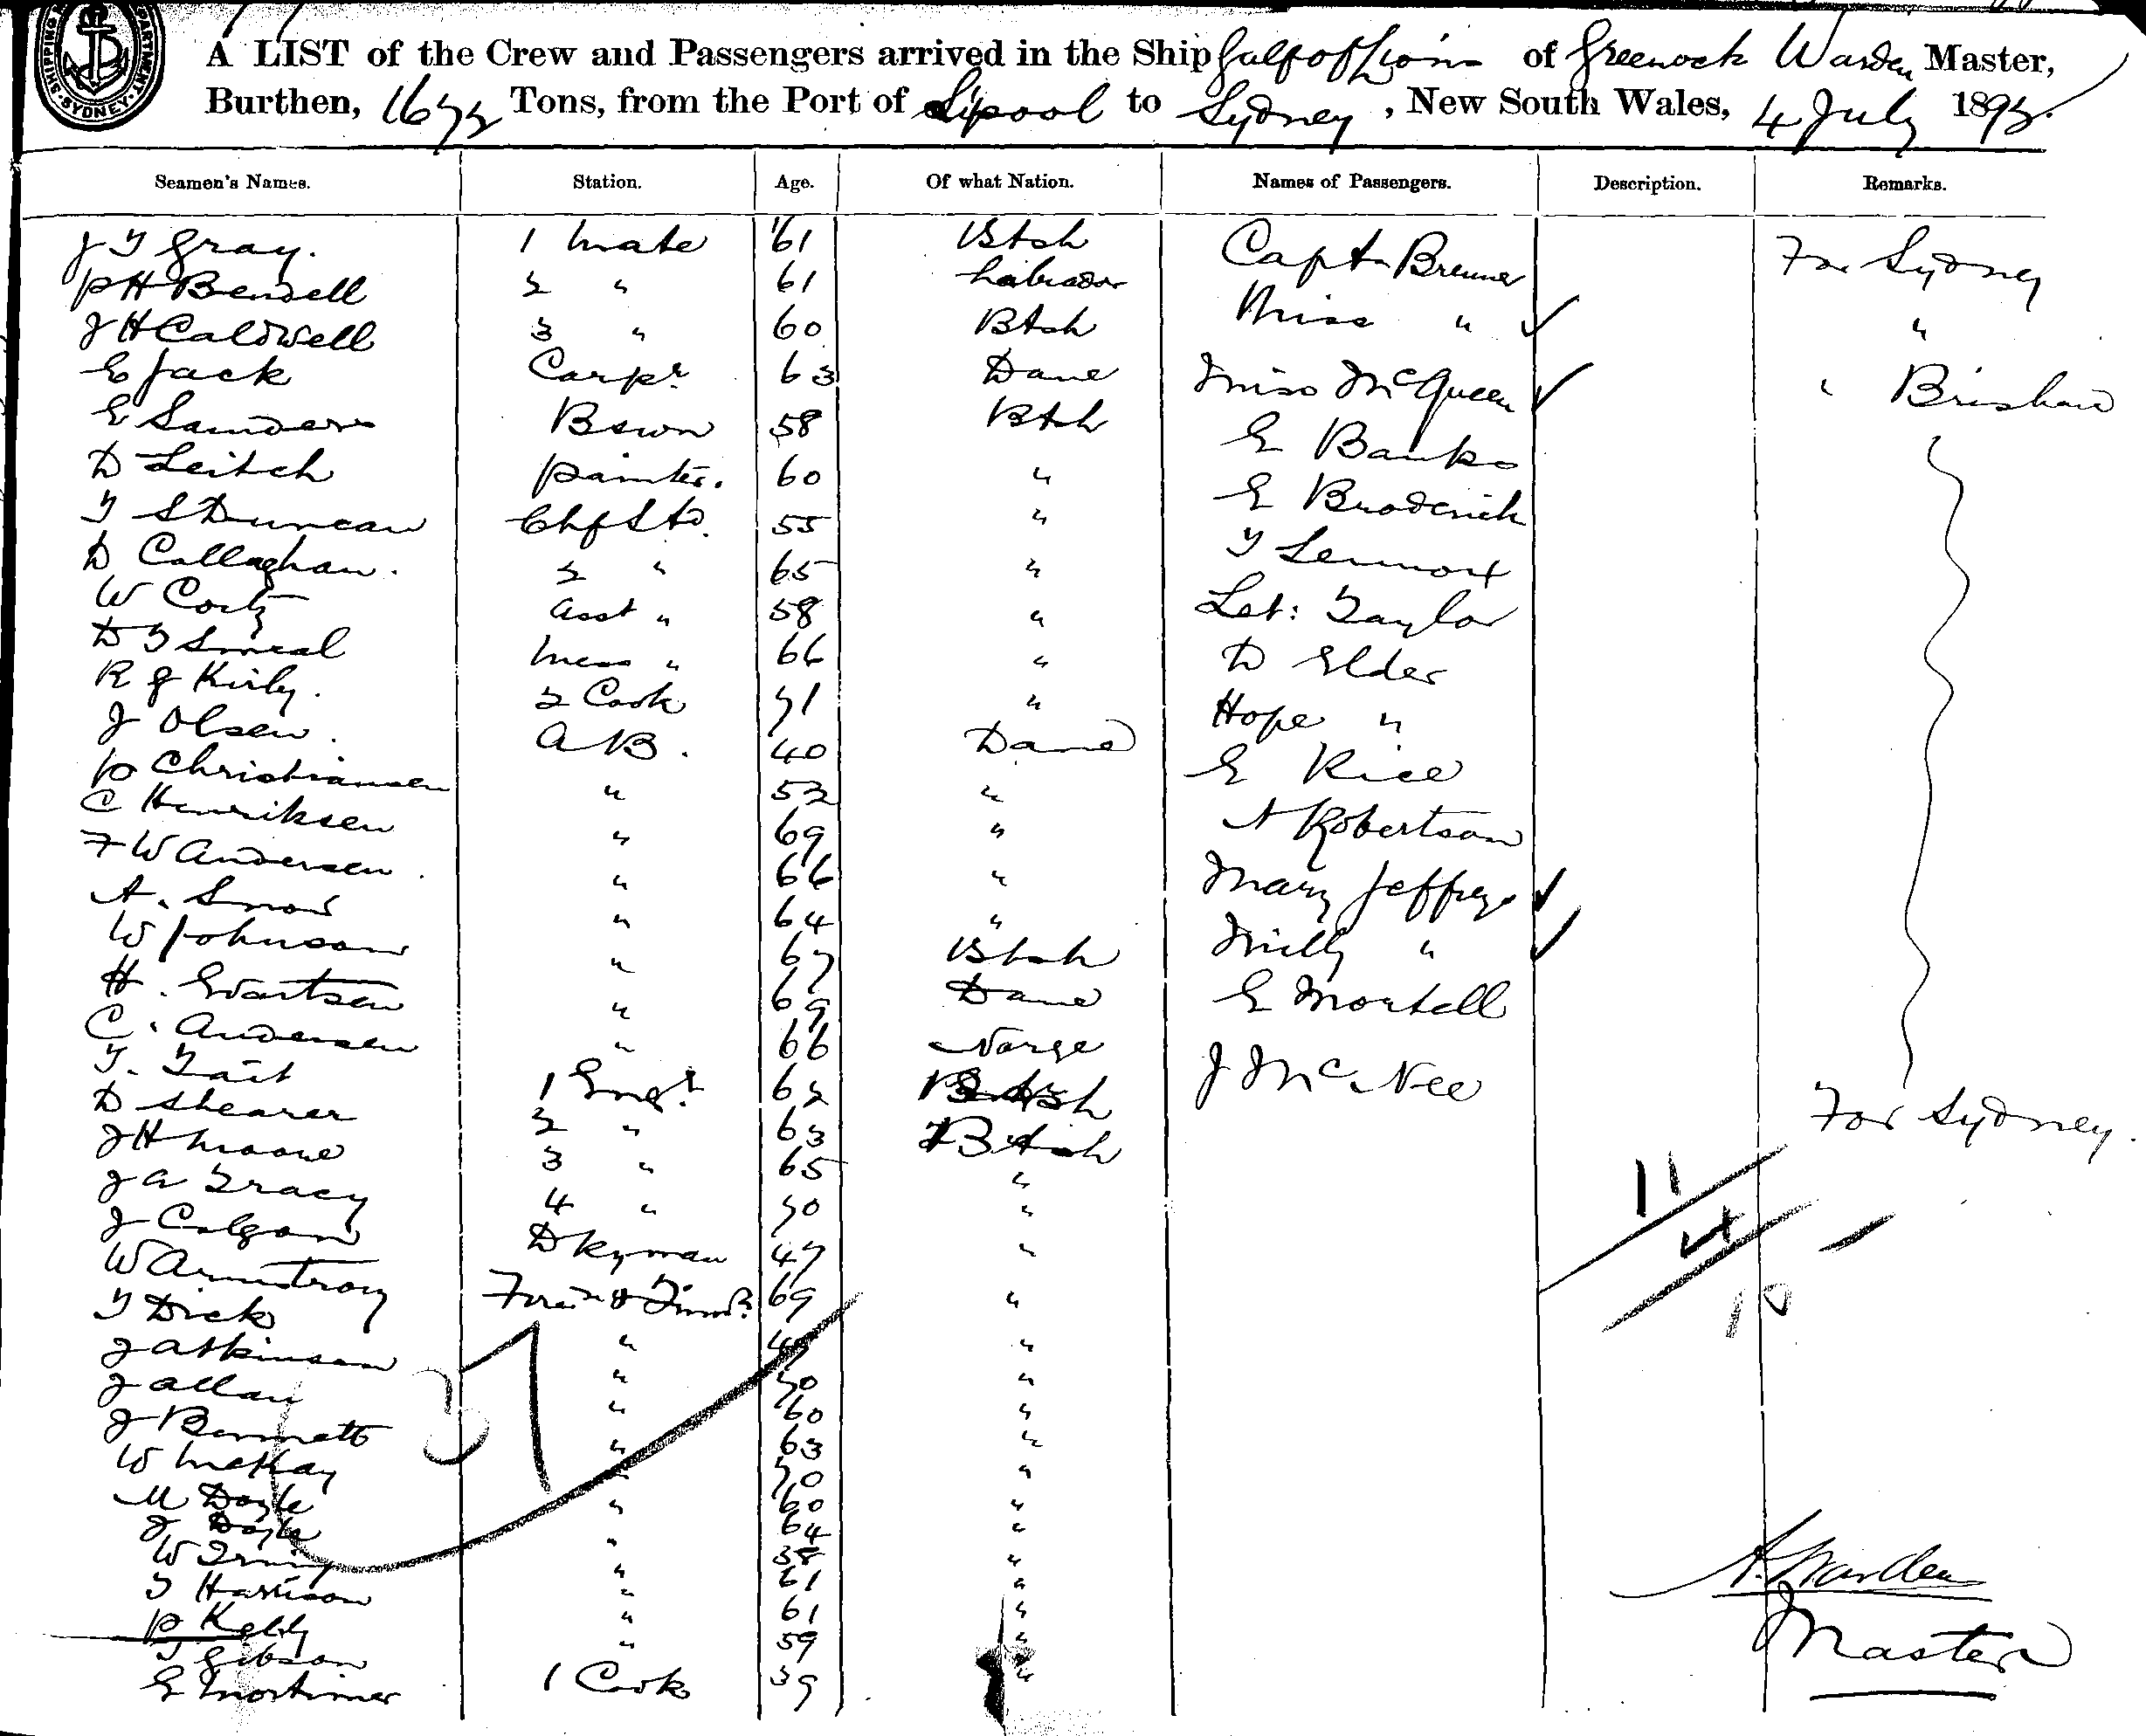 SHIPPING DEPARTMENT SYDNEY
A LIST of the Crew and Passengers arrived in the Ship Gulf of Lions of Greenock Warden Master,
Burthen, Tons, from the Port of L'pool to Sydney, New South Wales, 4 July 189
Seamen's Names. Station. Age. Of what Nation. Names of Passengers. Description. Remarks.
J T Gray. 1 Mate 61 Btsh Capt Bremner For Sydney
P H Bendell 2 " 61 Labrador Miss " "
J H Caldwell 3 " 60 Btsh
E Jack Carpr 63 Dane Miss McQueen " Brisbane
E Sanders Bswn 58 Btsh E Banks
D Leitch Painter. 60 " E Broderick
T S Duncan Chf Std. 55 " T Lennox
D Callaghan. 2 " 65 " Let: Taylor
W Asst " 58 "
D T Smeal Mess " 66 " D Elder
R J Kirby. 2 Cook 71 " Hope "
J Olsen. A B. 40 Dane E Rice
P Christiansen " 52 "
C Henriksen " 69 " A Robertson
F W Andersen. " 66 " Mary Jeffreys
A. " 64 "
W Johnson " 67 Btsh Milly "
H. Evartsen " 69 Dane E Mortell
C. Andersen " 66 Norge
T. Tait 1 Engr 62 Btsh J McNee
D Shearer 2 " 63 Btsh For Sydney.
J H Moore 3 " 65 "
J A Tracy 4 " 70 "
J Colgan Dkyman 47 "
W Armstrong 69 "
T Dick " "
J Atkinson " 70 "
J Allan " 60 "
J Bennett " 63 "
W McKay " 70 "
M Doyle " 60 "
J Doyle " 64 "
W Irving " 38 "
T Harrison " 61 "
P Kelly " 61 "
T Gibson " 59 "
E Mortimer 1 Cook 39 "
37
11
4
10
A. Warden
Master